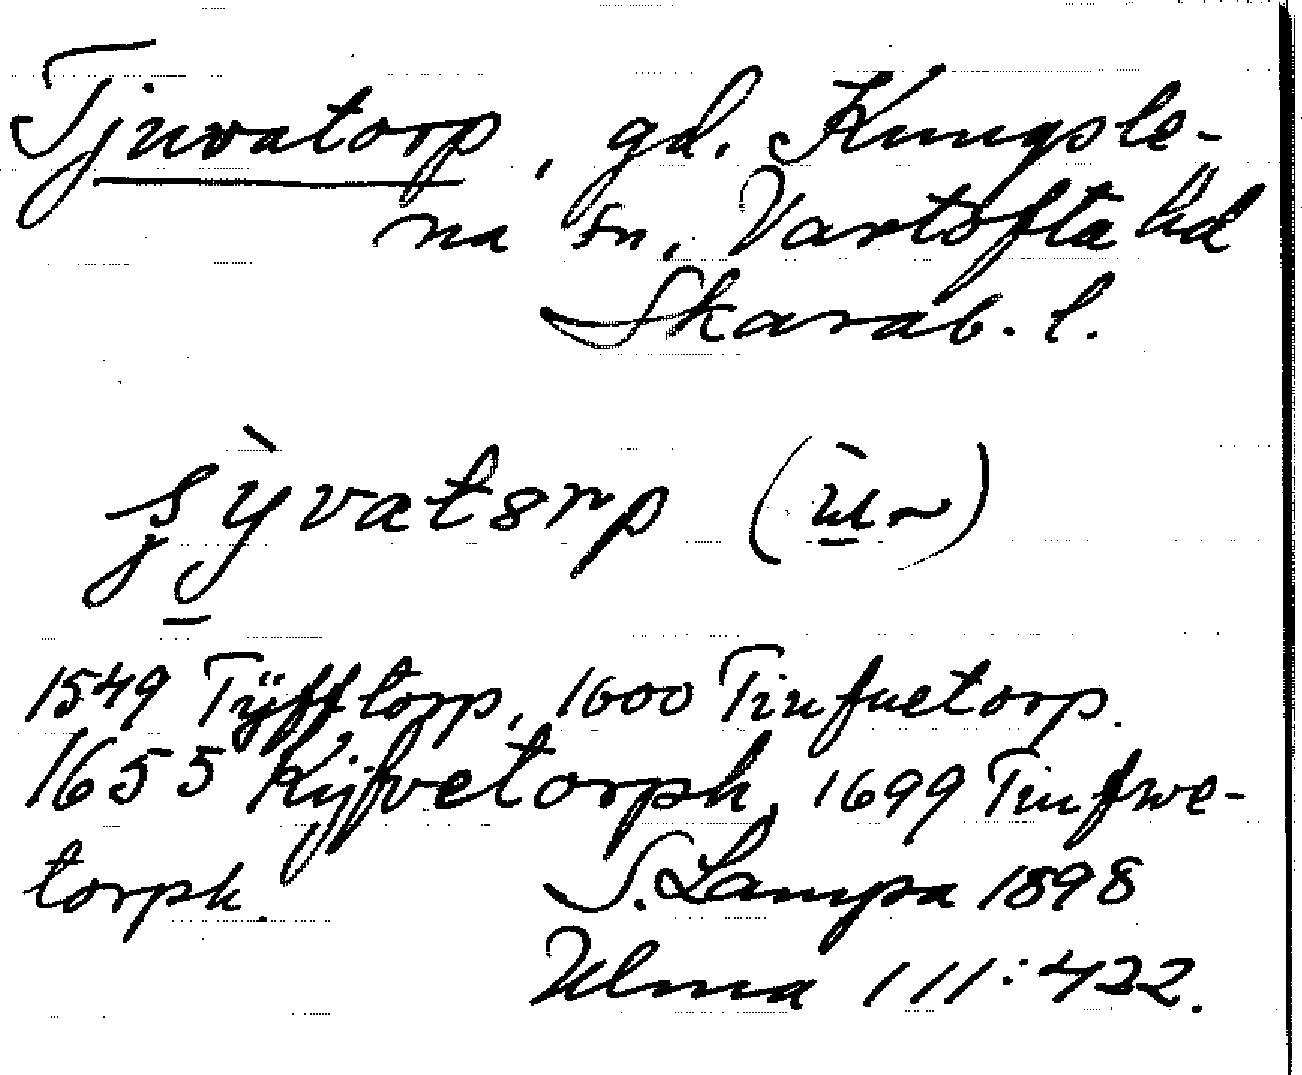 Tjuvatorp, gd. Kungsle-
na sn, Vartofta hd
Skarab. l.
(ù~)
1549 Tÿfftorp, 1600 Tiufuetorp.
1655 Kijfvetorph, 1699 Tiufwe-
torph. S. Lampa 1898
Ulma 111:422.